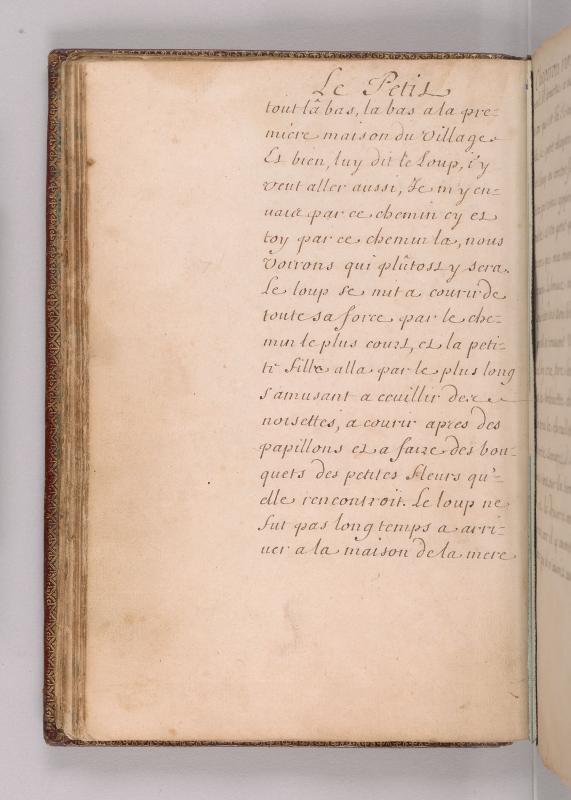 Le Petit
tout lâ bas, la bas a la pre=
miere maison du Village.
Et bien, luy dit le Loup, i'y
veut aller aussi, Je m'y en=
vaux par ce chemin cy et
toy par ce chemin la, nous
Voirons qui plûtost y sera.
Le loup se mit a courir de
toute sa force par le che=
min le plus court, et la peti=
te fille alla par le plus long
s'amusant a ceuillir des
noisettes, a courir apres des
papillons et a faire des bou=
quets des petites fleurs qu'=
elle rencontroit. Le loup ne
fut pas long temps a arri=
uer a la maison de la mere